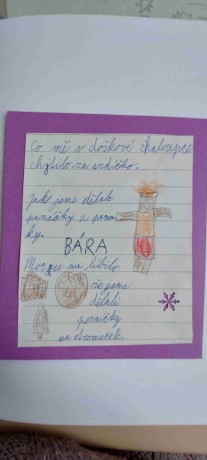 Co mě v doškové chaloupce
chytilo za srdíčko.
Jak jsme dělali
panáčky a panen
ky.
BÁRA
Moc se mi líbilo
že jsme
dělali
perníčky
na stromeček.